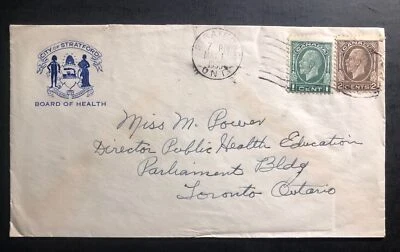 CITY OF STRATFORD
BOARD OF HEALTH
ONT
CANADA
1 CENT 1
CANADA
2 CENTS 2
Miss M. Power
Director Public Health Education
Parliament Bldg
Toronto Ontario